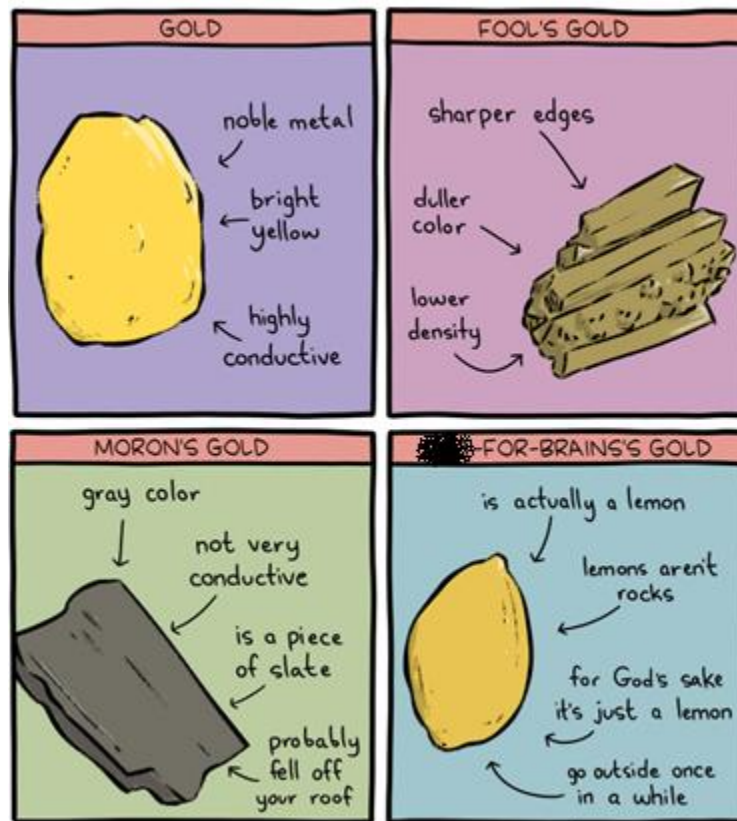 GOLD
noble metal
bright
yellow
highly
conductive
FOOL'S GOLD
sharper edges
duller
color
lower
density
MORON'S GOLD
gray color
not very
conductive
is a piece
of slate
probably
fell off
your roof
-FOR-BRAINS'S GOLD
is actually a lemon
lemons aren't
rocks
for God's sake
it's just a lemon
go outside once
in a while